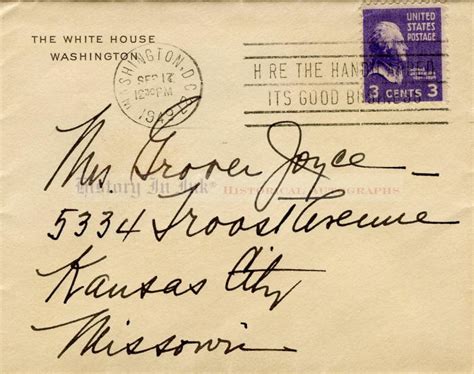 THE WHITE HOUSE
WASHINGTON
WASHINGTON, D.C.
SEP 17
12 30 PM
1951
UNITED STATES
POSTAGE
3 CENTS 3
HIRE THE HANDICAPPED
ITS GOOD BUSINESS
Mrs. Grover Joyce
History In Ink® HISTORICAL AUTOGRAPHS
5334 Troost Avenue
Kansas City
Missouri